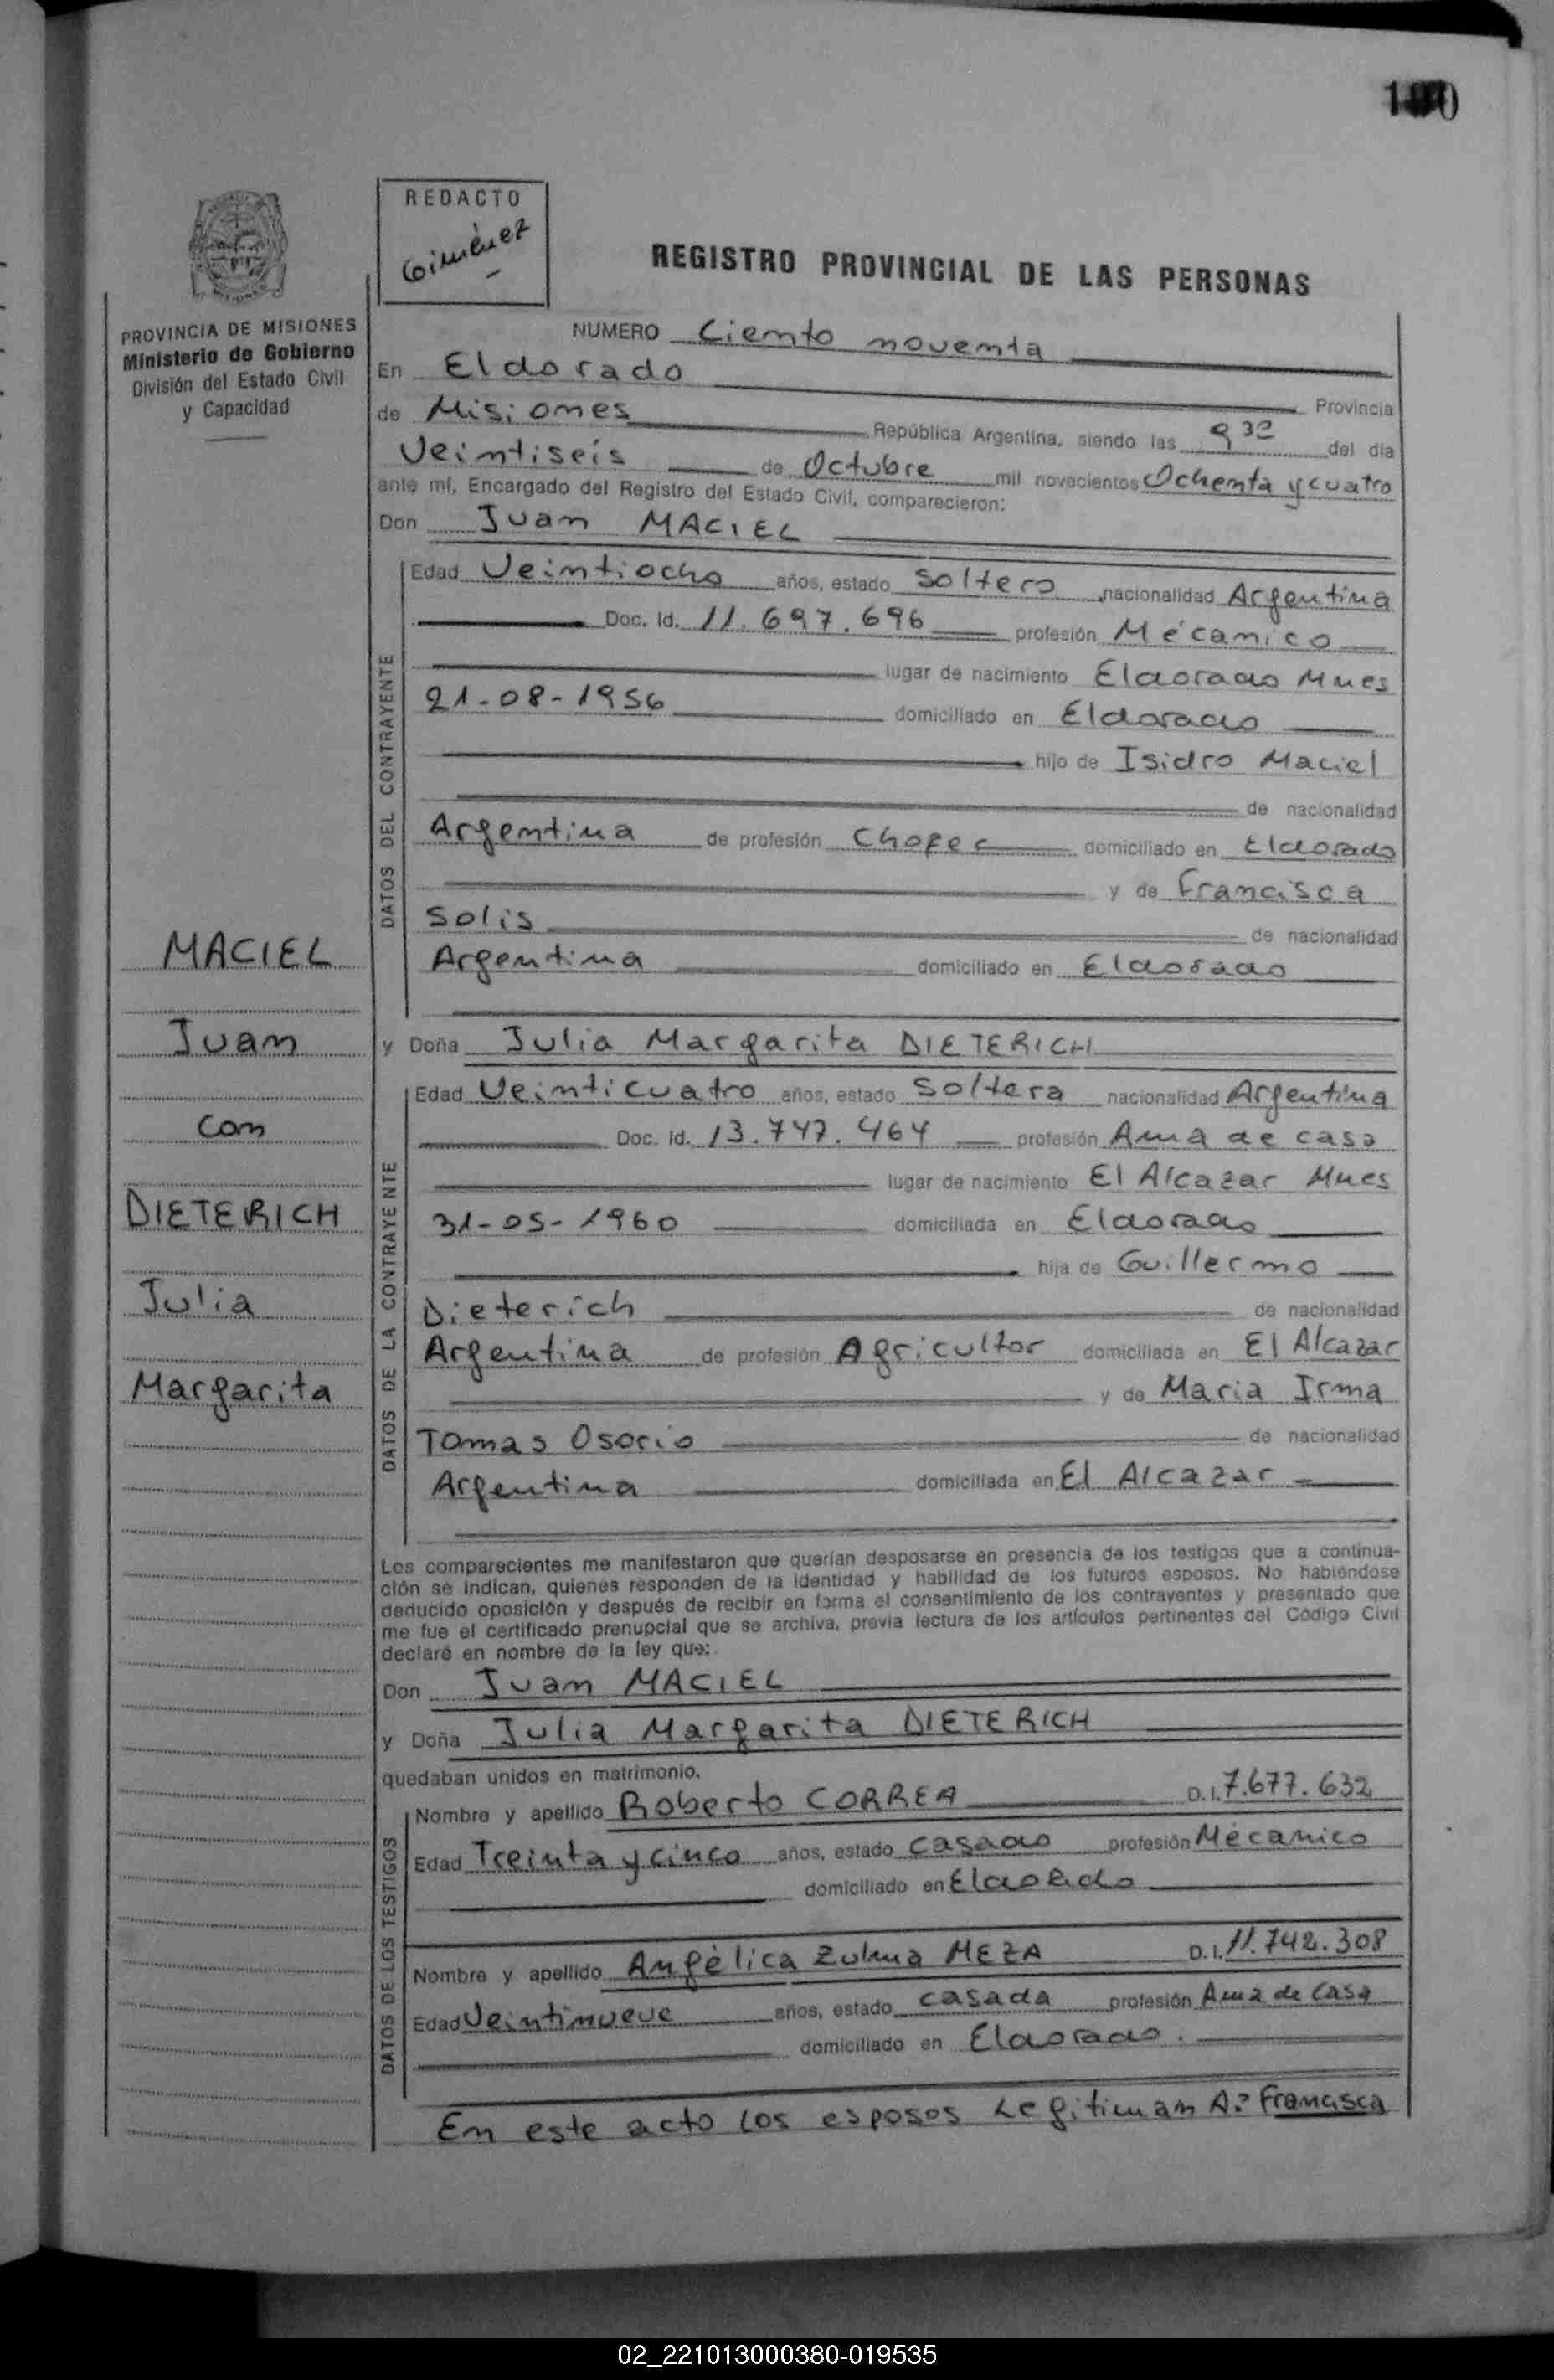 REDACTO
Giménez
REGISTRO PROVINCIAL DE LAS PERSONAS
PROVINCIA DE MISIONES
Ministerio de Gobierno
División del Estado Civil
y Capacidad
NUMERO Ciento noventa
En Eldorado Provincia
de Misiones República Argentina, siendo las 9 30 del día
Veintiseís de Octubre mil novecientos Ochenta y cuatro
ante mí, Encargado del Registro del Estado Civil, comparecieron:
Don Juan MACIEL
DATOS DEL CONTRAYENTE
Edad Veintiocho años, estado soltero nacionalidad Argentina
Doc. Id. 11.697.696 profesión Mécanico
lugar de nacimiento Eldorado Mnes
21-08-1956 domiciliado en Eldorado
hijo de Isidro Maciel
de nacionalidad
Argentina de profesión Chofer domiciliado en Eldorado
y de Francisca
Solis de nacionalidad
Argentina domiciliado en Eldorado
MACIEL
Juan
con
DIETERICH
Julia
Margarita
y Doña Julia Margarita DIETERICH
DATOS DE LA CONTRAYENTE
Edad Veinticuatro años, estado Soltera nacionalidad Argentina
Doc. Id. 13.747.464 profesión Ama de casa
lugar de nacimiento El Alcazar Mnes
31-05-1960 domiciliada en Eldorado
hija de Guillermo
Dieterich de nacionalidad
Argentina de profesión Agricultor domiciliada en El Alcazar
y de Maria Irma
Tomas Osorio de nacionalidad
Argentina domiciliada en El Alcazar
Los comparecientes me manifestaron que querían desposarse en presencia de los testigos que a continua-
ción se indican, quienes responden de la identidad y habilidad de los futuros esposos. No habiéndose
deducido oposición y después de recibir en forma el consentimiento de los contraventes y presentado que
me fue el certificado prenupcial que se archiva, previa lectura de los artículos pertinentes del Código Civil
declaré en nombre de la ley que:
Don Juan MACIEL
y Doña Julia Margarita DIETERICH
quedaban unidos en matrimonio.
DATOS DE LOS TESTIGOS
Nombre y apellido Roberto CORREA D.I. 7.677.632
Edad Treinta y cinco años, estado casado profesión Mécanico
domiciliado en Eldorado
Nombre y apellido Angélica Zulma MEZA D.I. 11.742.308
Edad Veintinueve años, estado casada profesión Ama de Casa
domiciliado en Eldorado.
En este acto los esposos Legitiman A: Francisca
02_221013000380-019535